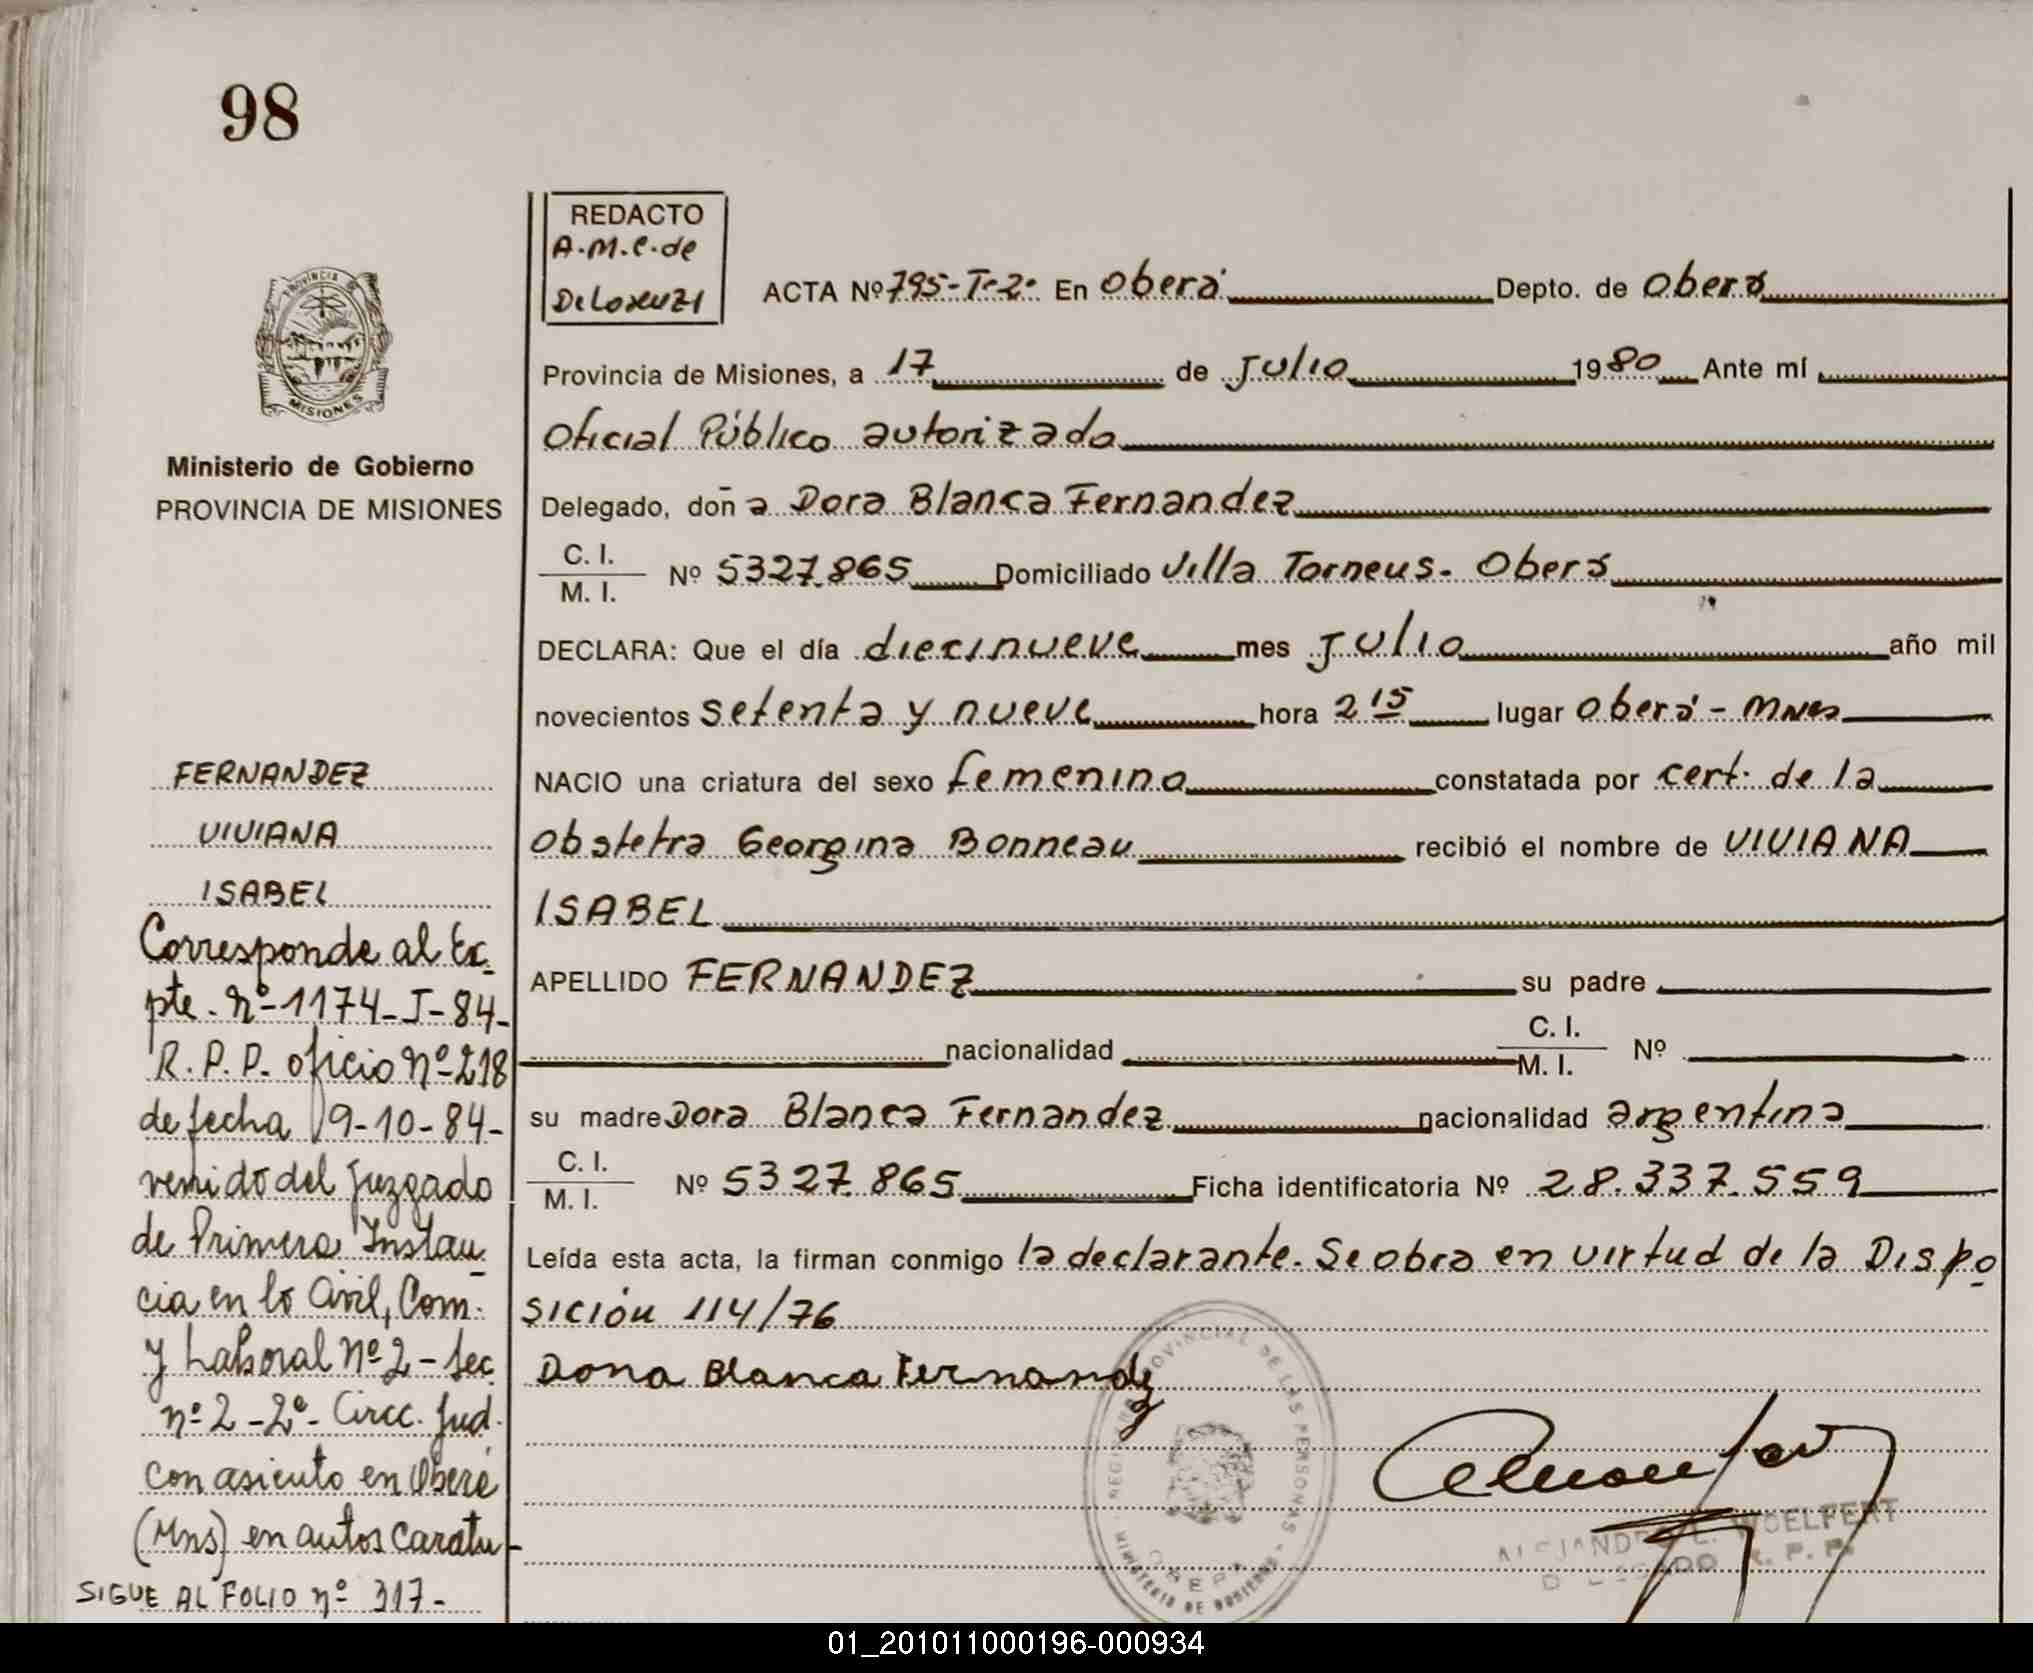 98
REDACTO
A.M.C. de
De Lorenzi
ACTA Nº 795-T-2º En Oberá Depto. de Oberá
Provincia de Misiones, a 17 de Julio 1980 Ante mí
Oficial Público autorizado
Delegado, doña Dora Blanca Fernandez
C. I.
M. I.
Nº 5327.865 Domiciliado Villa Torneus - Oberá
DECLARA: Que el día diecinueve mes Julio año mil
novecientos setenta y nueve hora 2 15 lugar Oberá - Mnes
NACIO una criatura del sexo femenino constatada por cert. de la
Obstetra Georgina Bonneau recibió el nombre de VIVIANA
ISABEL
APELLIDO FERNANDEZ su padre
nacionalidad C. I.
M. I. Nº
su madre Dora Blanca Fernandez nacionalidad argentina
C. I.
M. I.
Nº 5327.865 Ficha identificatoria Nº 28.337.559
Leída esta acta, la firman conmigo la declarante. Se obra en virtud de la Dispo
sición 114/76
Dona Blanca Fernandez
REGISTRO PROVINCIAL DE LAS PERSONAS - MINISTERIO DE GOBIERNO
OBERA
ALEJANDRO WOELFERT
DELEGADO R. P. P.
PROVINCIA DE
MISIONES
Ministerio de Gobierno
PROVINCIA DE MISIONES
FERNANDEZ
VIVIANA
ISABEL
Corresponde al Ex-
pte. nº 1174-I-84-
R. P. P. oficio nº 218
de fecha 19-10-84-
venido del Juzgado
de Primera Instan-
cia en lo Civil, Com.
y Laboral nº 2 - Sec
nº 2 - 2º - Circc. Jud.
con asiento en Oberá
(Mns) en autos caratu-
SIGUE AL FOLIO nº 317-
01_201011000196-000934